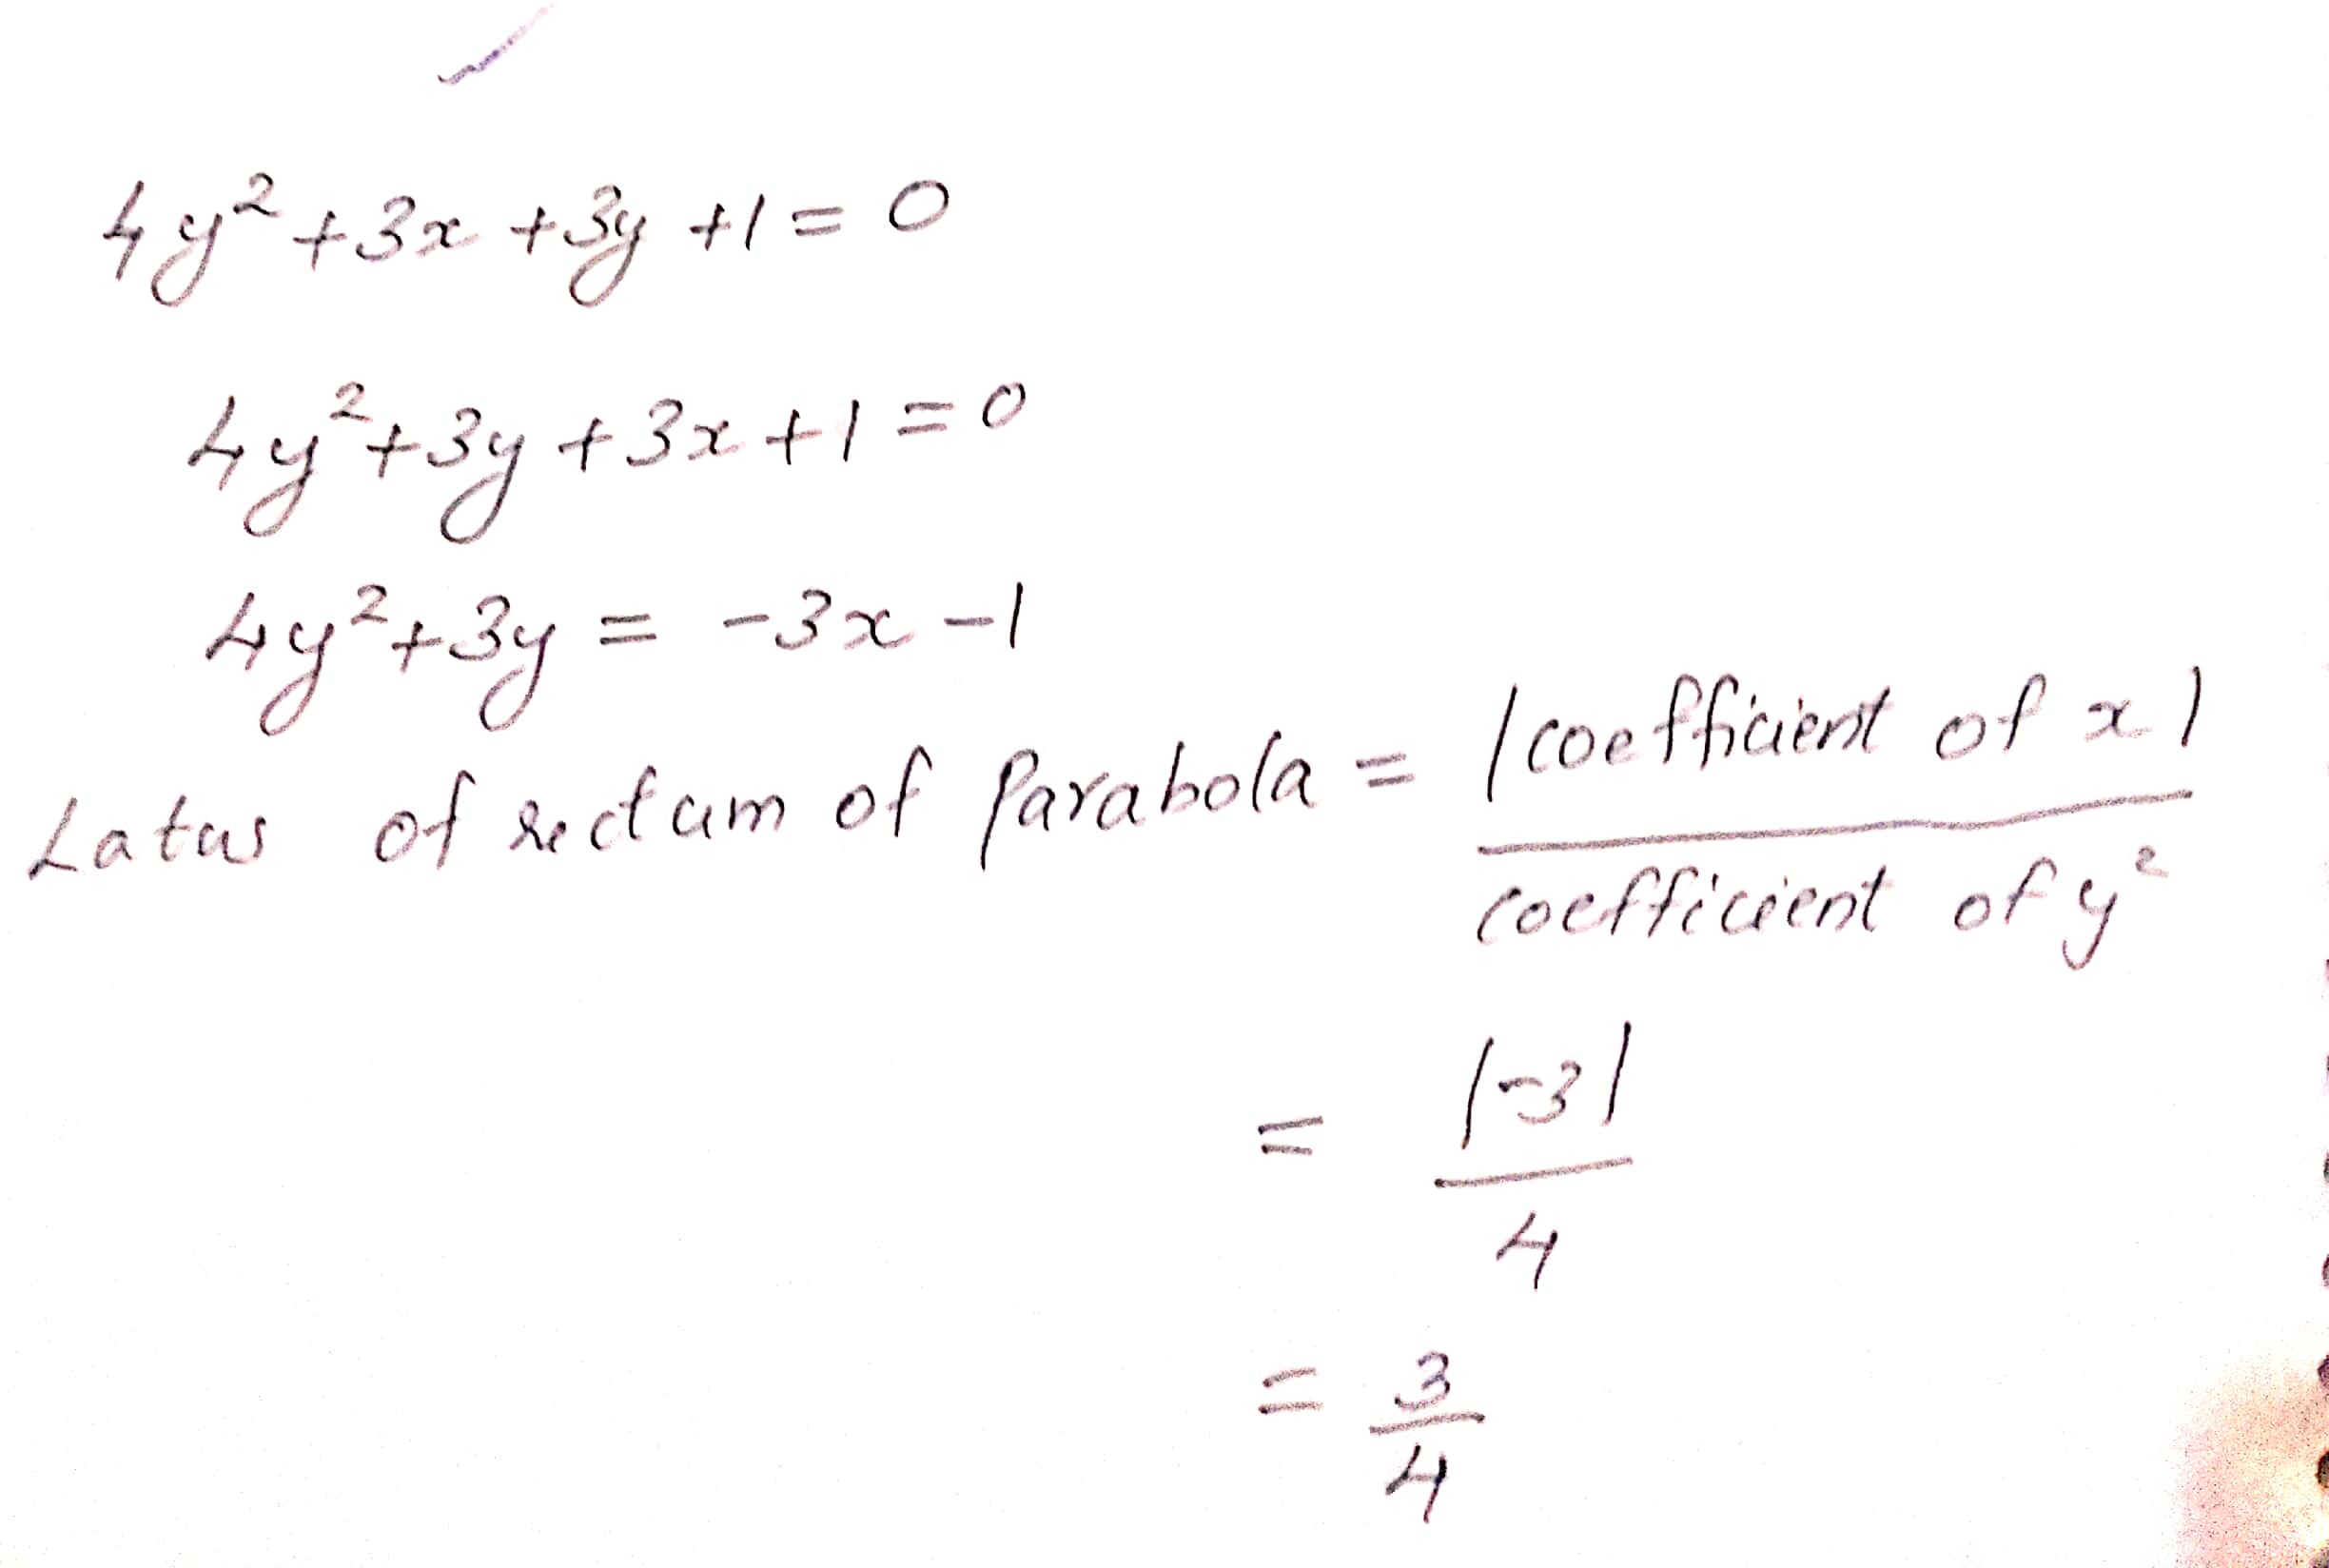 4y² + 3x + 3y + 1 = 0
4y² + 3y + 3x + 1 = 0
4y² + 3y = -3x - 1
Latus of rectum of Parabola = |coefficient of x| / coefficient of y²
= |-3| / 4
= 3/4